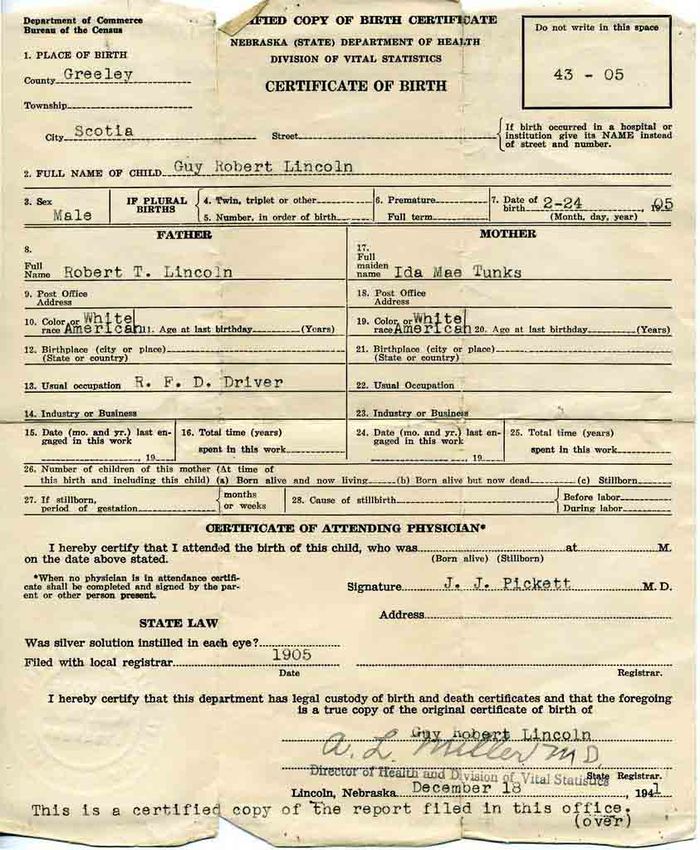 Department of Commerce
Bureau of the Census
IFIED COPY OF BIRTH CERTIFICATE
NEBRASKA (STATE) DEPARTMENT OF HEALTH
DIVISION OF VITAL STATISTICS
CERTIFICATE OF BIRTH
Do not write in this space
43 - 05
1. PLACE OF BIRTH
County Greeley
Township
City Scotia Street
If birth occurred in a hospital or
institution give its NAME instead
of street and number.
2. FULL NAME OF CHILD Guy Robert Lincoln
3. Sex
Male
IF PLURAL
BIRTHS
4. Twin, triplet or other
5. Number, in order of birth
6. Premature
Full term
7. Date of
birth 2-24, 1905
(Month, day, year)
FATHER
MOTHER
8.
Full
Name Robert T. Lincoln
17.
Full
maiden
name Ida Mae Tunks
9. Post Office
Address
18. Post Office
Address
10. Color or White
race American 11. Age at last birthday (Years)
19. Color or White
race American 20. Age at last birthday (Years)
12. Birthplace (city or place)
(State or country)
21. Birthplace (city or place)
(State or country)
13. Usual occupation R. F. D. Driver
22. Usual Occupation
14. Industry or Business
23. Industry or Business
15. Date (mo. and yr.) last en-
gaged in this work
, 19
16. Total time (years)
spent in this work
24. Date (mo. and yr.) last en-
gaged in this work
, 19
25. Total time (years)
spent in this work
26. Number of children of this mother (At time of
this birth and including this child) (a) Born alive and now living (b) Born alive but now dead (c) Stillborn
27. If stillborn,
period of gestation
months
or weeks
28. Cause of stillbirth
Before labor
During labor
CERTIFICATE OF ATTENDING PHYSICIAN*
I hereby certify that I attended the birth of this child, who was at M.
on the date above stated. (Born alive) (Stillborn)
*When no physician is in attendance certifi-
cate shall be completed and signed by the par-
ent or other person present.
Signature J. J. Pickett M. D.
Address
STATE LAW
Was silver solution instilled in each eye?
Filed with local registrar 1905
Date
Registrar.
I hereby certify that this department has legal custody of birth and death certificates and that the foregoing
is a true copy of the original certificate of birth of
Guy Robert Lincoln
A. L. Miller M D
Director of Health and Division of Vital Statistics
State Registrar.
Lincoln, Nebraska December 18, 1941
This is a certified copy of the report filed in this office.
(over)